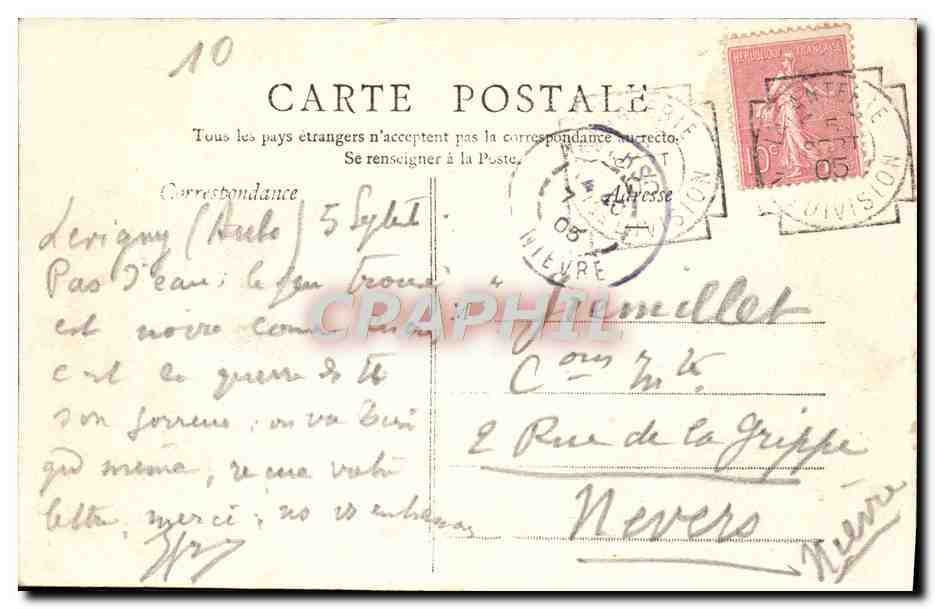 10
CARTE POSTALE
Tous les pays étrangers n'acceptent pas la correspondance au recto.
Se renseigner à la Poste.
Correspondance
Adresse
REPUBLIQUE FRANÇAISE
10c
05
DIVISION
DIVISION
05
NIEVRE
Levigny (Aube) 5 Sept
Pas d'eau; le peu trouvé
est noire come
c'est la guerre ds tte
son horreur, on va bien
qd même, reçue votre
lettre, merci; ns vs embrassons
Gremillet
Cons Mte
2 Rue de la Grippe
Nevers
Nièvre
CPAPHIL